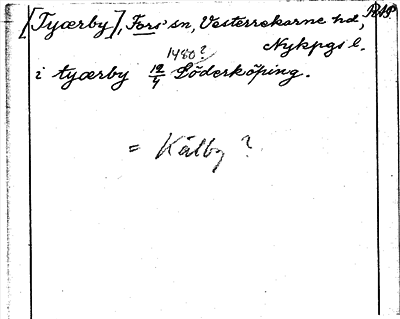 [Tyærby], Fors sn, Vesterrekarne hd,
Nykpgs l.
1480?
i tyærby 12/4 Söderköping.
= Kälby ?